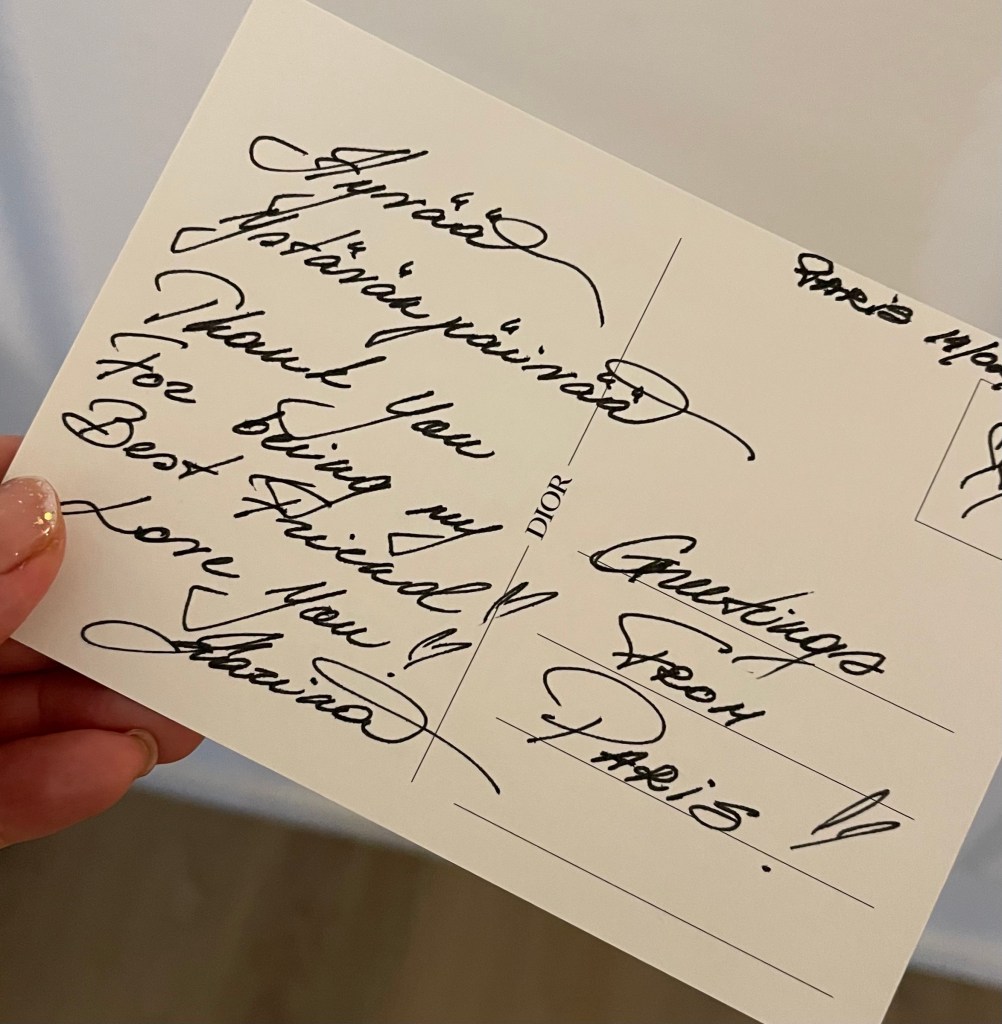 Hyvää
Ystävänpäivää
Thank You
For being my
Best Friend
Love You!
DIOR
PARIS 14/02
Greetings
FROM
PARIS!